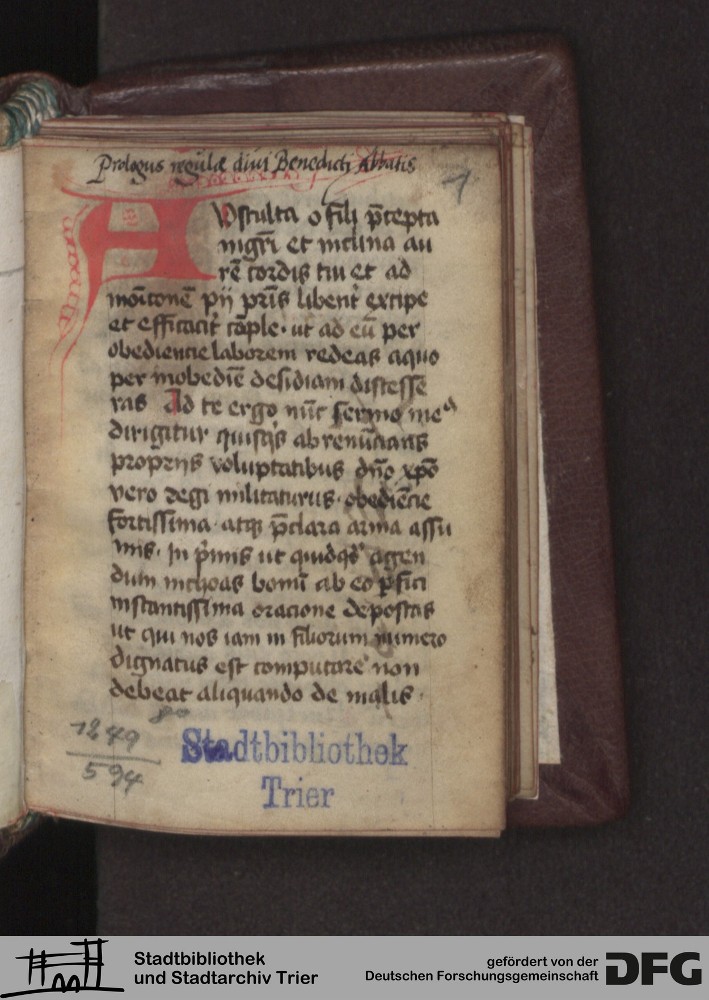 Prologus regulæ diui Benedicti Abbatis
1
AVsculta o fili p̄cepta
mg̅ri et inclina au
rē cordis tui et ad
monitionē pij pr̄is libent̾ excipe
et efficacit̾ cōple · ut ad eū per
obediencie laborem redeas a quo
per inobediē desidiam discesse
ras Ad te ergo nūc sermo meꝰ
dirigitur quisq̾s abrenūcians
proprijs voluptatibus dn̄o xp̄o
vero regi militaturus · obediēcie
fortissima · atq̾ p̄clara arma assu
mis · In p̾mis ut quidq̾d agen
dum inchoas bonū ab eo ꝑfici
instantissima oracione deposcas
ut qui nos iam in filiorum numero
dignatus est computare non
debeat aliquando de malis ·
80
1249
594
Stadtbibliothek
Trier
Stadtbibliothek
und Stadtarchiv Trier
gefördert von der
Deutschen Forschungsgemeinschaft
DFG